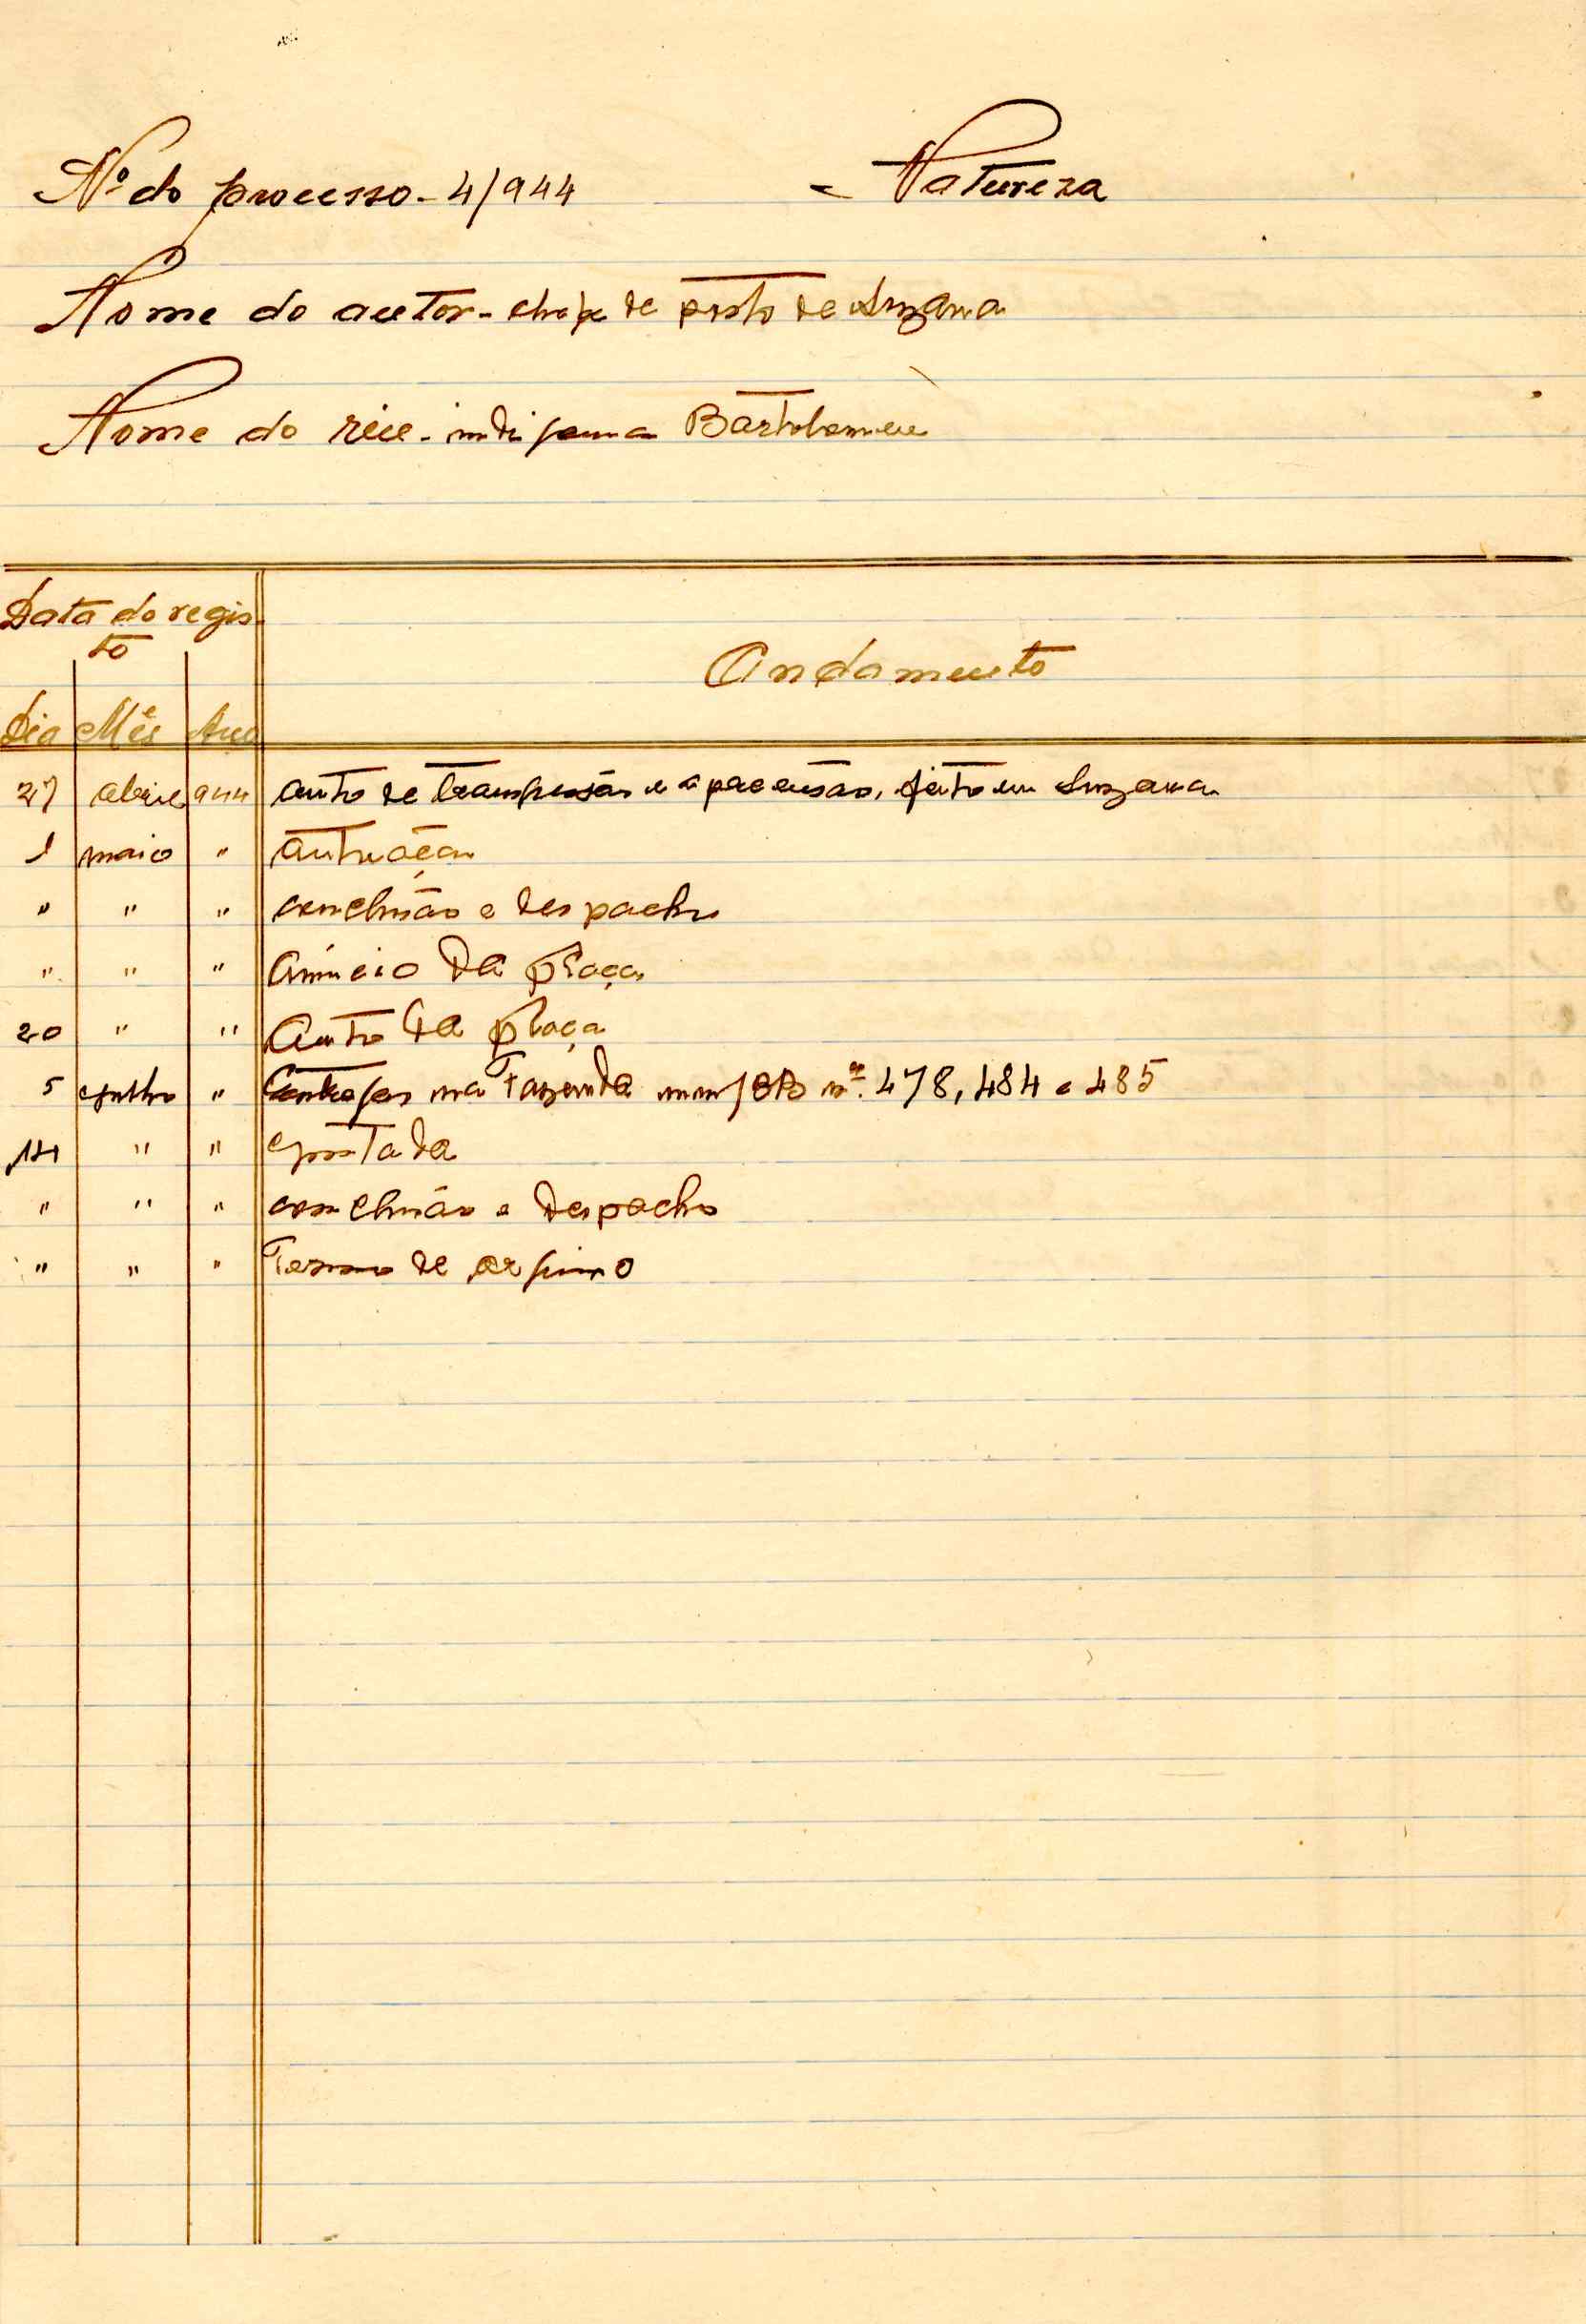 Nº do processo - 4/944 - Natureza
Nome do autor - chefe de posto de Suzana
Nome do réu - indigena Bartolomeu
Data do regis-
to
Andamento
Dia Mês Ano
27 abril 944 auto de transgressão e apreensão, feito em Suzana
1 maio " autuação
" " " conclusão e despacho
" " " Anúncio da praça
20 " " Auto da praça
5 junho " Entregas na Fazenda nº 478, 484 e 485
14 " " juntada
" " " conclusão e despacho
" " " Termo de